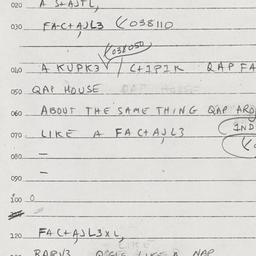 020 A S+AJTL,
030 FA-C+AJL3 038110
038050
040 A KUPK3 / C+1P1K QAP FA
050 QAP HOUSE
060 ABOUT THE SAME THING QAP ARO
070 LIKE A FAC+AJL3 IND
080 —
090 —
100 0
120 FAC+AJL3XL,
LIKE A NAP